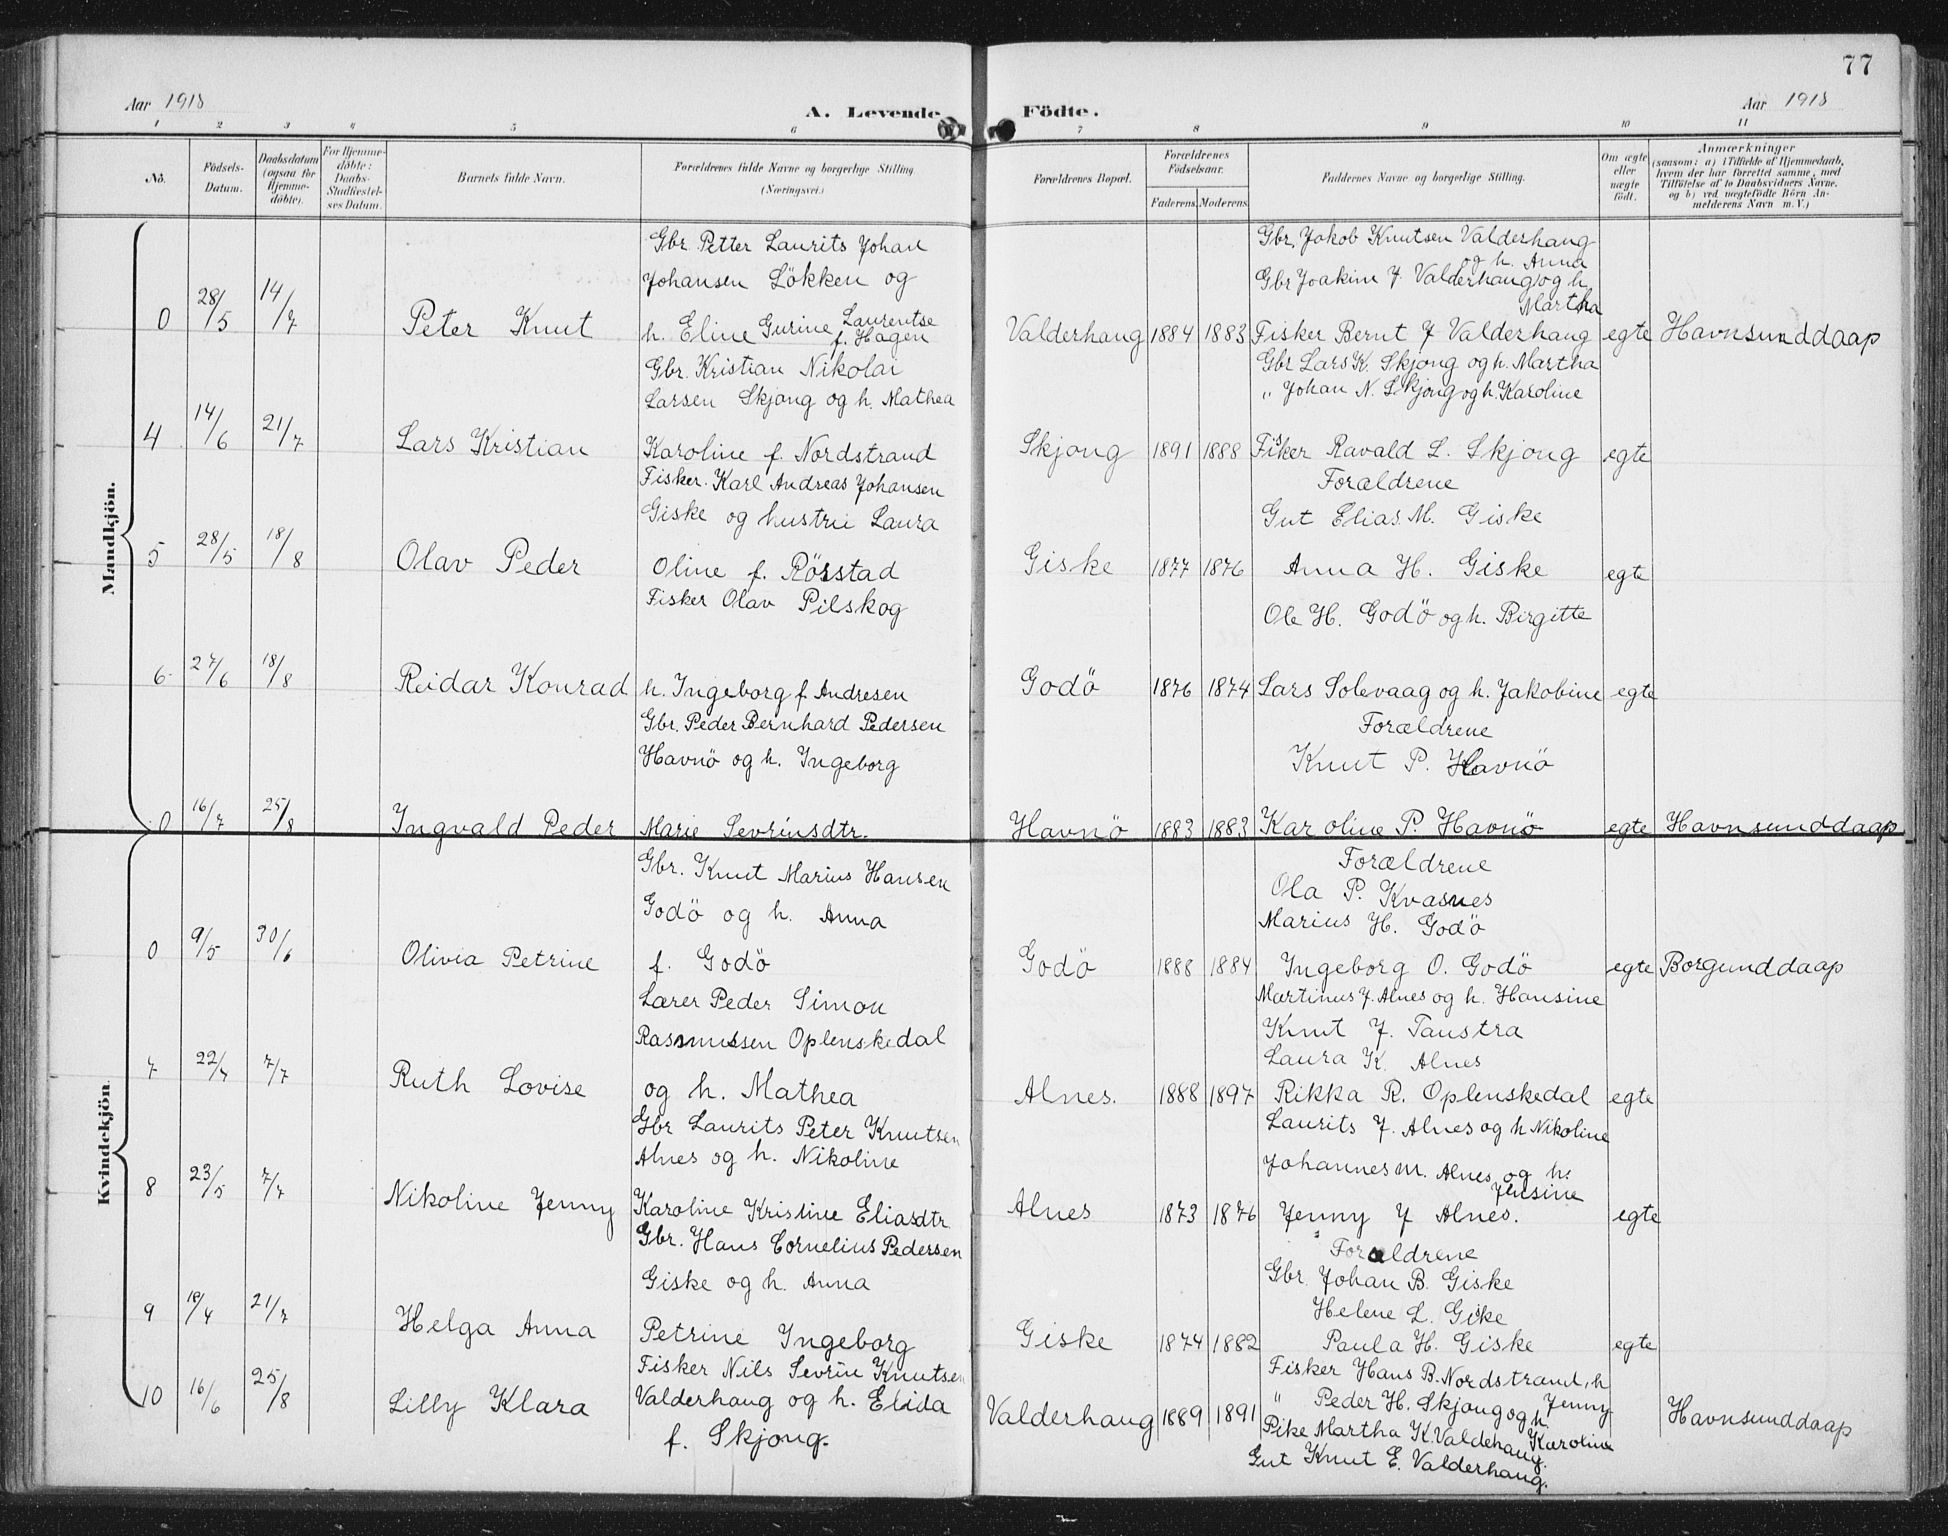 77
Aar 1918
A. Levende
Födte.
Aar 1918
1 2 3 4 5 6 7 8 9 10 11
No.
Födsels-Datum.
Daabsdatum (ogsaa for Hjemme-döbte).
For Hjemme-döbte: Daabs-Stadfæstel-ses Datum.
Barnets fulde Navn.
Forældrenes fulde Navne og borgerlige Stilling (Næringsvei.)
Forældrenes Bopæl.
Forældrenes Födselsaar.
Faderens. Moderens.
Faddernes Navne og borgerlige Stilling.
Om ægte eller uægte födt.
Anmærkninger
(saasom: a) i Tilfælde af Hjemmedaab, hvem der har forrettet samme, med Tilföielse af to Daabsvidners Navne, og b) ved uægtefödte Börn Anmelderens Navn m. V.)
Mandkjön.
0 28/5 14/7 Peter Knut
Gbr. Petter Laurits Johan
Johansen Lökken og
h. Eline Gurine Laurentse
f. Hagen
Valderhaug 1884 1883
Gbr. Jakob Knutsen Valderhaug
og h. Anna
Gbr Joakim J Valderhaug og h.
Martha
Fisker Bernt J Valderhaug
egte Havnsunddaap
4 14/6 21/7 Lars Kristian
Gbr. Kristian Nikolai
Larsen Skjong og h. Mathea
Karoline f. Nordstrand
Skjong 1891 1888
Gbr Lars K. Skjong og h. Martha
" Johan N. Skjong og h. Karoline
Fisker Ravald L. Skjong
egte
5 28/5 18/8 Olav Peder
Fisker. Karl Andreas Johansen
Giske og hustru Laura
Oline f. Rösstad
Giske 1877 1876
Forældrene
Gut Elias M. Giske
Anna H. Giske
egte
6 27/6 18/8 Reidar Konrad
Fisker Olav Pilskog
h. Ingeborg f Andresen
Godö 1876 1874
Ole H. Godö og h. Birgitte
Lars Solevaag og h. Jakobine
egte
0 16/7 25/8 Ingvald Peder
Gbr. Peder Bernhard Pedersen
Havnö og h. Ingeborg
Marie Sevrinsdtr.
Havnö 1883 1883
Forældrene
Knut P. Havnö
Karoline P. Havnö
egte Havnsunddaap
Kvindekjön
0 9/5 30/6 Olivia Petrine
Gbr. Knut Marius Hansen
Godö og h. Anna
f. Godö
Godö 1888 1884
Forældrene
Ola P. Kvasnes
Marius H. Godö
Ingeborg O. Godö
egte Borgunddaap
7 22/4 7/7 Ruth Lovise
Lærer Peder Simon
Rasmussen Oplenskedal
og h. Mathea
Alnes. 1888 1897
Martinus J. Alnes og h. Hansine
Knut J. Taustra
Laura K. Alnes
Rikka R. Oplenskedal
egte
8 23/5 7/7 Nikoline Jenny
Gbr Laurits Peter Knutsen
Alnes og h. Nikoline
Karoline Kristine Eliasdtr
Alnes 1873 1876
Laurits J. Alnes og h Nikoline
Johannes M. Alnes og h.
Jensine
Jenny J Alnes.
egte
9 18/4 21/7 Helga Anna
Gbr. Hans Cornelius Pedersen
Giske og h. Anna
Petrine Ingeborg
Giske 1874 1882
Forældrene
Gbr. Johan B. Giske
Helene L. Giske
Paula H. Giske
egte
10 16/6 25/8 Lilly Klara
Fisker Nils Sevrin Knutsen
Valderhaug og h. Elida
f. Skjong.
Valderhaug 1889 1891
Fisker Hans B. Nordstrand, h
Jenny
" Peder H. Skjong og h.
Karoline
Pike Martha K. Valdehaug.
Gut Knut E. Valderhaug.
Havnsunddaap